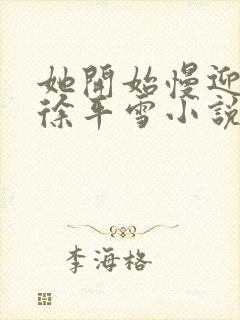 她開始慢迎
徐平雪小說
李海格